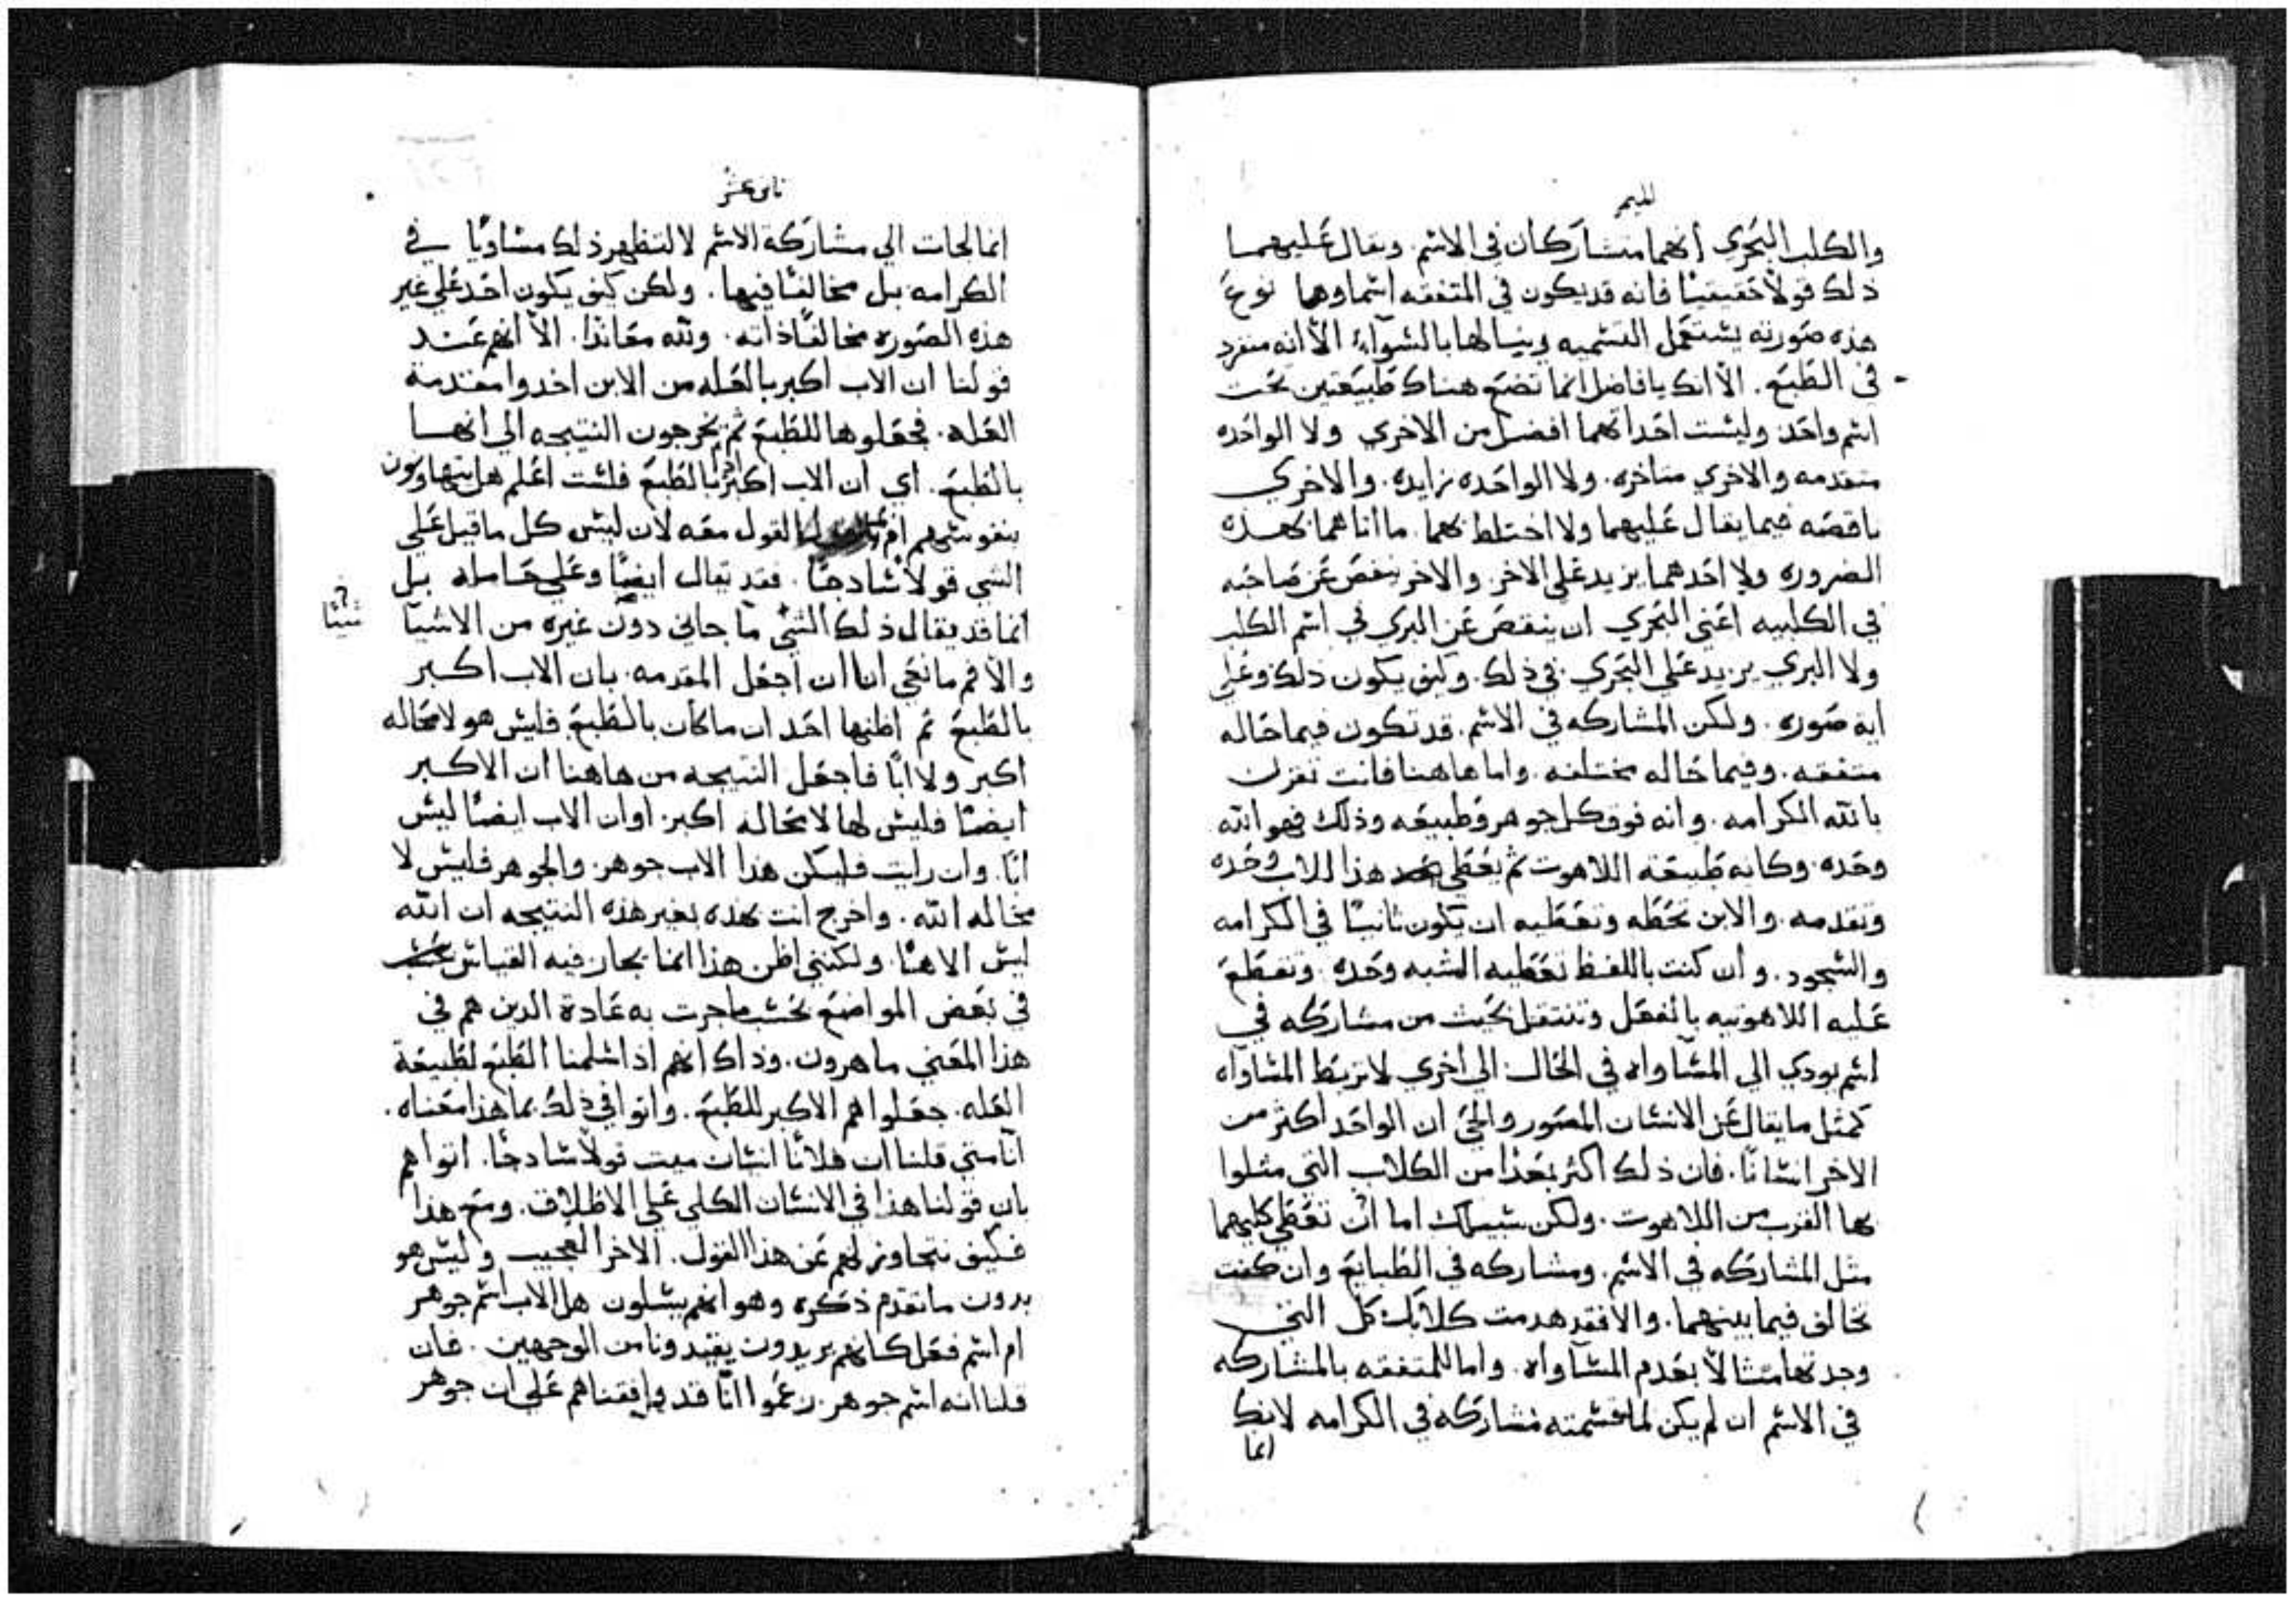 الميمر
والكلب البحري انهما متشاركان في الاسم. ويقال عليهما
ذلك قولاً حقيقيًا فانه قد يكون في المتفقه اسماوهما نوع
هذه صورته يستعمل التسميه وينالها بالسواء الا انه منفرد
في الطبع. الا انك يا فاضل انما تضع هناك طبيعتين تحت
اسم واحد وليست احداتهما افضل من الاخري ولا الواحده
متقدمه والاخري متاخره. ولا الواحده زايده. والاخري
ناقصه فيما يقال عليهما ولا اختلط بهما. ما اتاهما بهذه
الضروره ولا احدهما يزيد علي الاخر. والاخر ينقص عن صاحبه
في الكلبيه اعني البحري ان ينقص عن البري في اسم الكلب
ولا البري يزيد علي البحري في ذلك. وكيف يكون ذلك وعلي
اية صوره. ولكن المشاركه في الاسم. قد تكون فيما حاله
متفقه. وفيما حاله مختلفه. واما هاهنا فانت تقرن
بالله الكرامه. وانه فوق كل جوهر وطبيعه وذلك فهو الله
وحده. وكانه طبيعته اللاهوت ثم تعطي هذا للاب وحده
وتقدمه. والابن تحطه وتعطيه ان يكون ثانيًا في الكرامه
والسجود. وان كنت باللفظ تعطيه الشبه وحده. وتقطع
عليه اللاهوتيه بالفعل وتنتقل بخبث من مشاركه في
اسم يودي الي المساواه في الحال. الي اخري لا تربط المساواه
كمثل ما يقال عن الانسان المصور والحي ان الواحد اكثر من
الاخر انسانًا. فان ذلك اكثر بعدًا من الكلاب التي مثلوا
بها القرب من اللاهوت. ولكن سبيلك اما ان تعطي كليهما
مثل المشاركه في الاسم. ومشاركه في الطبايع وان كنت
تخالف فيما بينهما. والا فقد هدمت كلابك كل التي
وجدتها مثالاً بعدم المساواه. واما للمتفقه بالمشاركه
في الاسم ان لم يكن لما قسمته مشاركه في الكرامه لانك
انما
ثاني عشر
انما لجات الي مشاركة الاسم لا لتظهر ذلك مساويًا في
الكرامه بل مخالفًا فيها. ولكن كيف يكون احد علي غير
هذه الصوره مخالفًا ذاته. ولله معاندًا. الا انهم عند
قولنا ان الاب اكبر بالعله من الابن اخدوا مقدمة
العله. فجعلوها للطبع ثم يخرجون النتيجه الي انها
بالطبع. اي ان الاب اكبر بالطبع فلست اعلم هل يتهاونون
بنفوسهم ام القول معه لان ليس كل ما قيل علي
الشي قولاً سادجًا. فقد يقال ايضًا وعلي حامله بل
انما قد يقال ذلك الشي ما جاني دون غيره من الاشيا
شيئًا
والا فم مانعي انا ان اجعل المقدمه. بان الاب اكبر
بالطبع ثم اظنها احد ان ما كان بالطبع. فليس هو لا محاله
اكبر ولا ابًا فاجعل النتيجه من هاهنا ان الاكبر
ايضًا فليس لها لا محاله اكبر. او ان الاب ايضًا ليس
ابًا. وان رايت فليكن هذا الاب جوهر. والجوهر فليس لا
مخاله الله. واخرج انت بهذه بغير هذه النتيجه ان الله
ليس الاهنا. ولكنني اظن هذا انما بحار فيه القياس
في بعض المواضع بحسب ما جرت به عادة الدين هم في
هذا المعني ماهرون. وذاك انهم اذا سلمنا الطبع لطبيعة
العله. جعلوا هم الاكبر للطبع. واتوا في ذلك بما هذا معناه.
انا متي قلنا ان فلانًا انسان ميت قولاً سادجًا. اتوا هم
بان قولنا هذا في الانسان الكلي علي الاطلاق. ومع هذا
فكيف نتجاوز لهم عن هذا القول. الاخر العجيب وليس هو
بدون ما تقدم ذكره وهو انهم يسلون هل الاب اسم جوهر
ام اسم فعل كانهم يريدون يقيدونا من الوجهين. فان
قلنا انه اسم جوهر. زعموا انّا قد وافقناهم علي ان جوهر